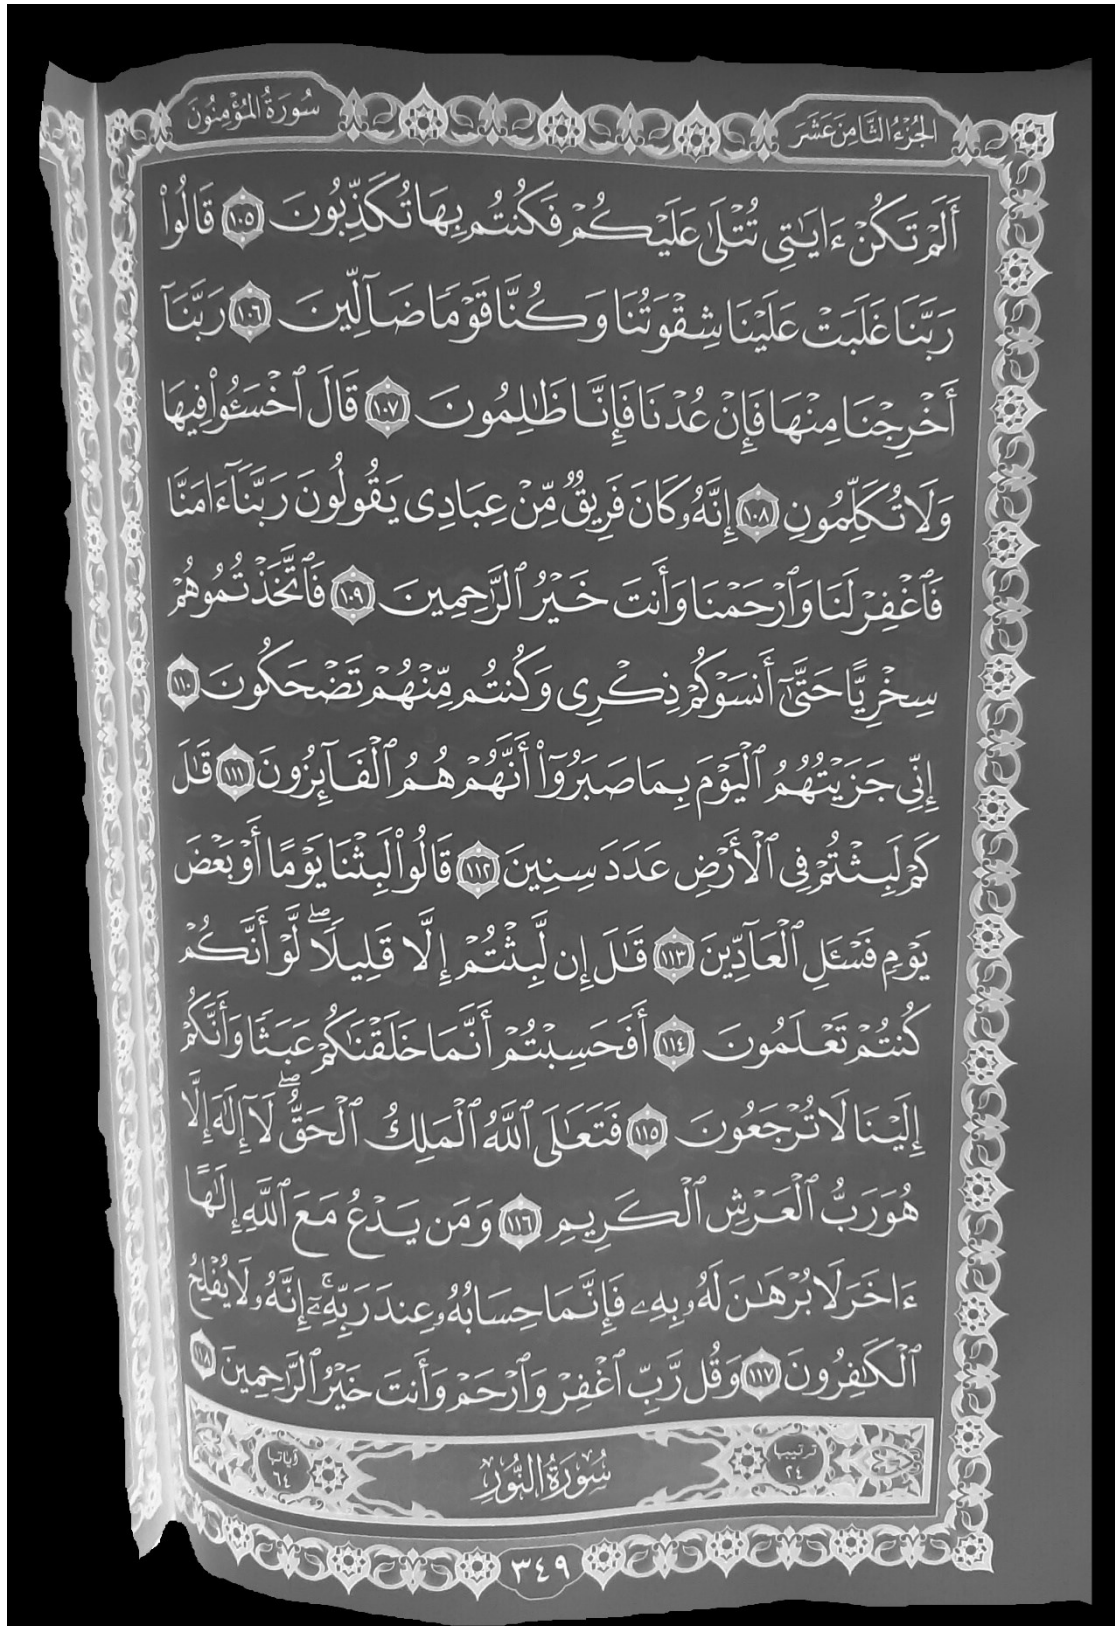 الجزء الثامن عشر
سورة المؤمنون
أَلَمْ تَكُنْ ءَايَٰتِى تُتْلَىٰ عَلَيْكُمْ فَكُنتُم بِهَا تُكَذِّبُونَ ١٠٥ قَالُوا۟
رَبَّنَا غَلَبَتْ عَلَيْنَا شِقْوَتُنَا وَكُنَّا قَوْمًا ضَآلِّينَ ١٠٦ رَبَّنَآ
أَخْرِجْنَا مِنْهَا فَإِنْ عُدْنَا فَإِنَّا ظَٰلِمُونَ ١٠٧ قَالَ ٱخْسَـُٔوا۟ فِيهَا
وَلَا تُكَلِّمُونِ ١٠٨ إِنَّهُۥ كَانَ فَرِيقٌ مِّنْ عِبَادِى يَقُولُونَ رَبَّنَآ ءَامَنَّا
فَٱغْفِرْ لَنَا وَٱرْحَمْنَا وَأَنتَ خَيْرُ ٱلرَّٰحِمِينَ ١٠٩ فَٱتَّخَذْتُمُوهُمْ
سِخْرِيًّا حَتَّىٰٓ أَنسَوْكُمْ ذِكْرِى وَكُنتُم مِّنْهُمْ تَضْحَكُونَ ١١٠
إِنِّى جَزَيْتُهُمُ ٱلْيَوْمَ بِمَا صَبَرُوٓا۟ أَنَّهُمْ هُمُ ٱلْفَآئِزُونَ ١١١ قَٰلَ
كَمْ لَبِثْتُمْ فِى ٱلْأَرْضِ عَدَدَ سِنِينَ ١١٢ قَالُوا۟ لَبِثْنَا يَوْمًا أَوْ بَعْضَ
يَوْمٍ فَسْـَٔلِ ٱلْعَآدِّينَ ١١٣ قَٰلَ إِن لَّبِثْتُمْ إِلَّا قَلِيلًا ۖ لَّوْ أَنَّكُمْ
كُنتُمْ تَعْلَمُونَ ١١٤ أَفَحَسِبْتُمْ أَنَّمَا خَلَقْنَٰكُمْ عَبَثًا وَأَنَّكُمْ
إِلَيْنَا لَا تُرْجَعُونَ ١١٥ فَتَعَٰلَى ٱللَّهُ ٱلْمَلِكُ ٱلْحَقُّ ۖ لَآ إِلَٰهَ إِلَّا
هُوَ رَبُّ ٱلْعَرْشِ ٱلْكَرِيمِ ١١٦ وَمَن يَدْعُ مَعَ ٱللَّهِ إِلَٰهًا
ءَاخَرَ لَا بُرْهَٰنَ لَهُۥ بِهِۦ فَإِنَّمَا حِسَابُهُۥ عِندَ رَبِّهِۦٓ ۚ إِنَّهُۥ لَا يُفْلِحُ
ٱلْكَٰفِرُونَ ١١٧ وَقُل رَّبِّ ٱغْفِرْ وَٱرْحَمْ وَأَنتَ خَيْرُ ٱلرَّٰحِمِينَ ١١٨
ترتيبها ٢٤ سُورَةُ النُّورِ آياتها ٦٤
٣٤٩